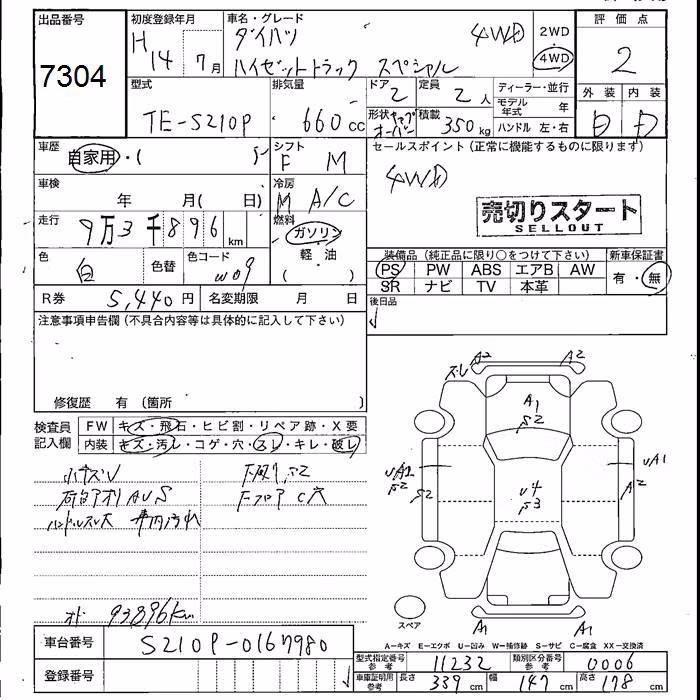 出品番号
7304
初度登録年月
H14 7月
車名・グレード
ダイハツ 4WD
ハイゼットトラック スペシャル
2WD
4WD
評価点
2
外装 内装
D D
型式
TE-S210P
排気量
660cc
ドア
2
定員
2人
形状
積載
350kg
ディーラー・並行
モデル年式 年
ハンドル 左・右
車歴
自家用・( )
シフト
F M
セールスポイント (正常に機能するものに限ります)
4WD
売切りスタート
SELLOUT
車検
年 月( 日)
冷房
M A/C
走行
9万3千896km
燃料
ガソリン
軽・油
( )
色
白
色替
色コード
W09
装備品 (純正品に限り○をつけて下さい)
PS PW ABS エアB AW
SR ナビ TV 本革
新車保証書
有・無
R券 5,440円
名変期限 月 日
後日品
注意事項申告欄 (不具合内容等は具体的に記入して下さい)
修復歴 有 (箇所 )
検査員記入欄
FW キズ・飛石・ヒビ割・リペア跡・X要
内装 キズ・汚レ・コゲ・穴・スレ・キレ・破レ
小キズV
下廻りS2
荷台アオリAVS
下フロアC穴
ハンドルスレ大 車内汚れ
オド 93896km
ズレ A2 A2
A1
S2
UA2
S2
S2
U4
S3
UA1
A2
スペア
A1 A1
A-キズ E-エクボ U-凹み W-補修跡 S-サビ C-腐食 XX-交換済
車台番号
S210P-0167980
登録番号
型式指定番号 参考 11232
類別区分番号 参考 0006
車庫証明用 参考 長さ 339cm 幅 147cm 高さ 178cm